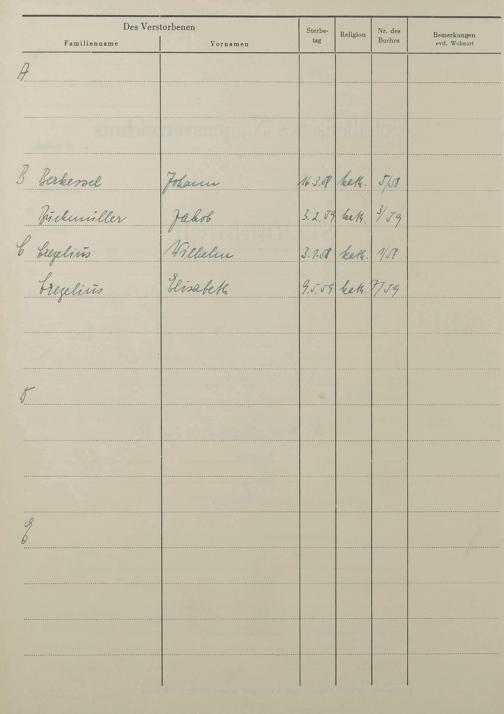 Des Verstorbenen
Familienname Vornamen Sterbe-
tag Religion Nr. des
Buches Bemerkungen
evtl. Wohnort
A
B Berkessel Johann 14.3.58 kath. 5/58
Jakob 3.2.59 kath. 3/59
C Cregelius Wilhelm 3.1.58 kath. 1/58
Cregelius Elisabeth 9.5.59 kath. 7/59
D
E